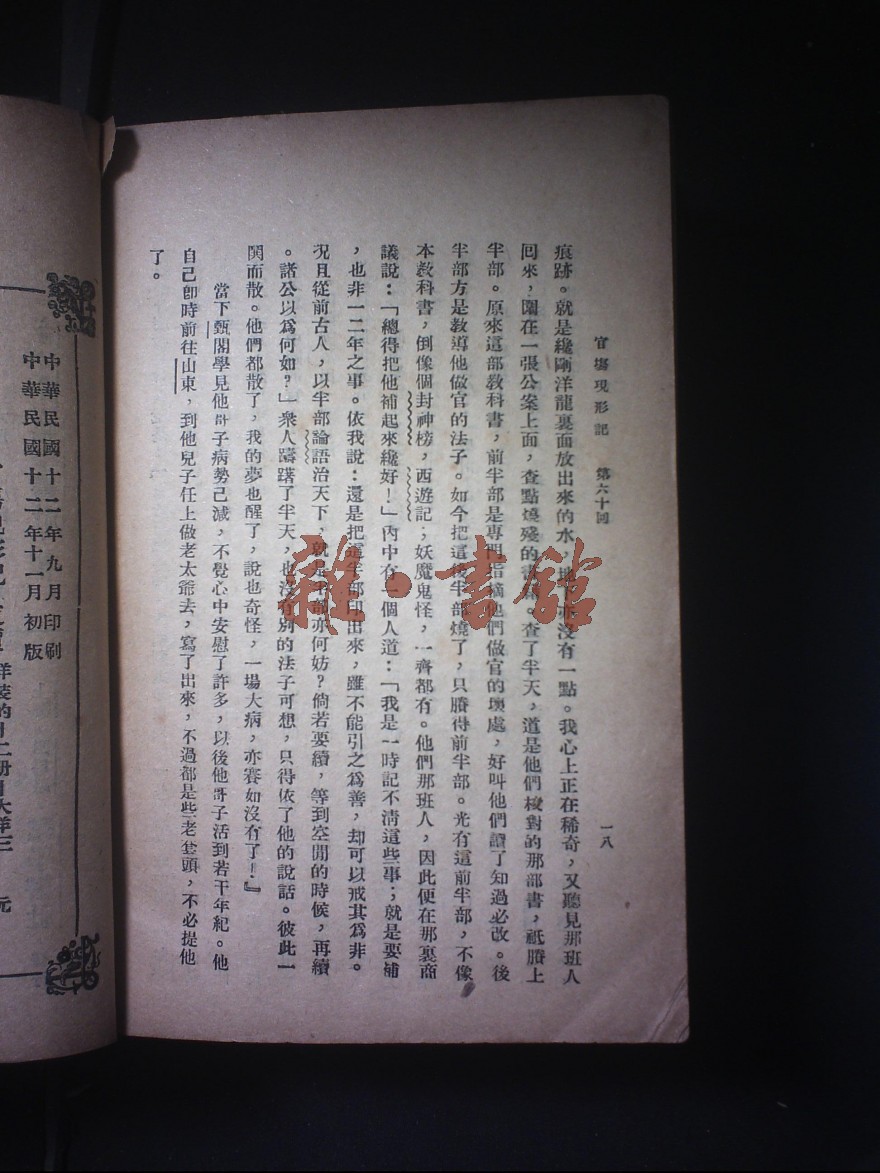 官場現形記　第六十回　一八
痕跡。就是纔剛洋龍裏面放出來的水，地下亦沒有一點。我心上正在稀奇，又聽見那班人
回來，圍在一張公案上面，查點燒殘的書籍。查了半天，道是他們校對的那部書，祇賸上
半部。原來這部教科書，前半部是專門指摘他們做官的壞處，好叫他們讀了知過必改。後
半部方是教導他做官的法子。如今把這後半部燒了，只賸得前半部。光有這前半部，不像
本教科書，倒像個封神榜，西遊記；妖魔鬼怪，一齊都有。他們那班人，因此便在那裏商
議說：「總得把他補起來纔好！」內中有一個人道：「我是一時記不清這些事；就是要補
，也非一二年之事。依我說：還是把這半部印出來，雖不能引之爲善，却可以戒其爲非。
況且從前古人，以半部論語治天下，就是半部亦何妨？倘若要續，等到空閒的時候，再續
。諸公以爲何如？」衆人躊躇了半天，也沒有別的法子可想，只得依了他的說話。彼此一
閧而散。他們都散了，我的夢也醒了，說也奇怪，一場大病，亦賽如沒有了！』
當下甄閣學見他哥子病勢已減，不覺心中安慰了許多，以後他哥子活到若干年紀。他
自己卽時前往山東，到他兒子任上做老太爺去，寫了出來，不過都是些老套頭，不必提他
了。
中華民國十二年九月印刷
中華民國十二年十一月初版
洋裝
二册
大洋三
元
雜·書館